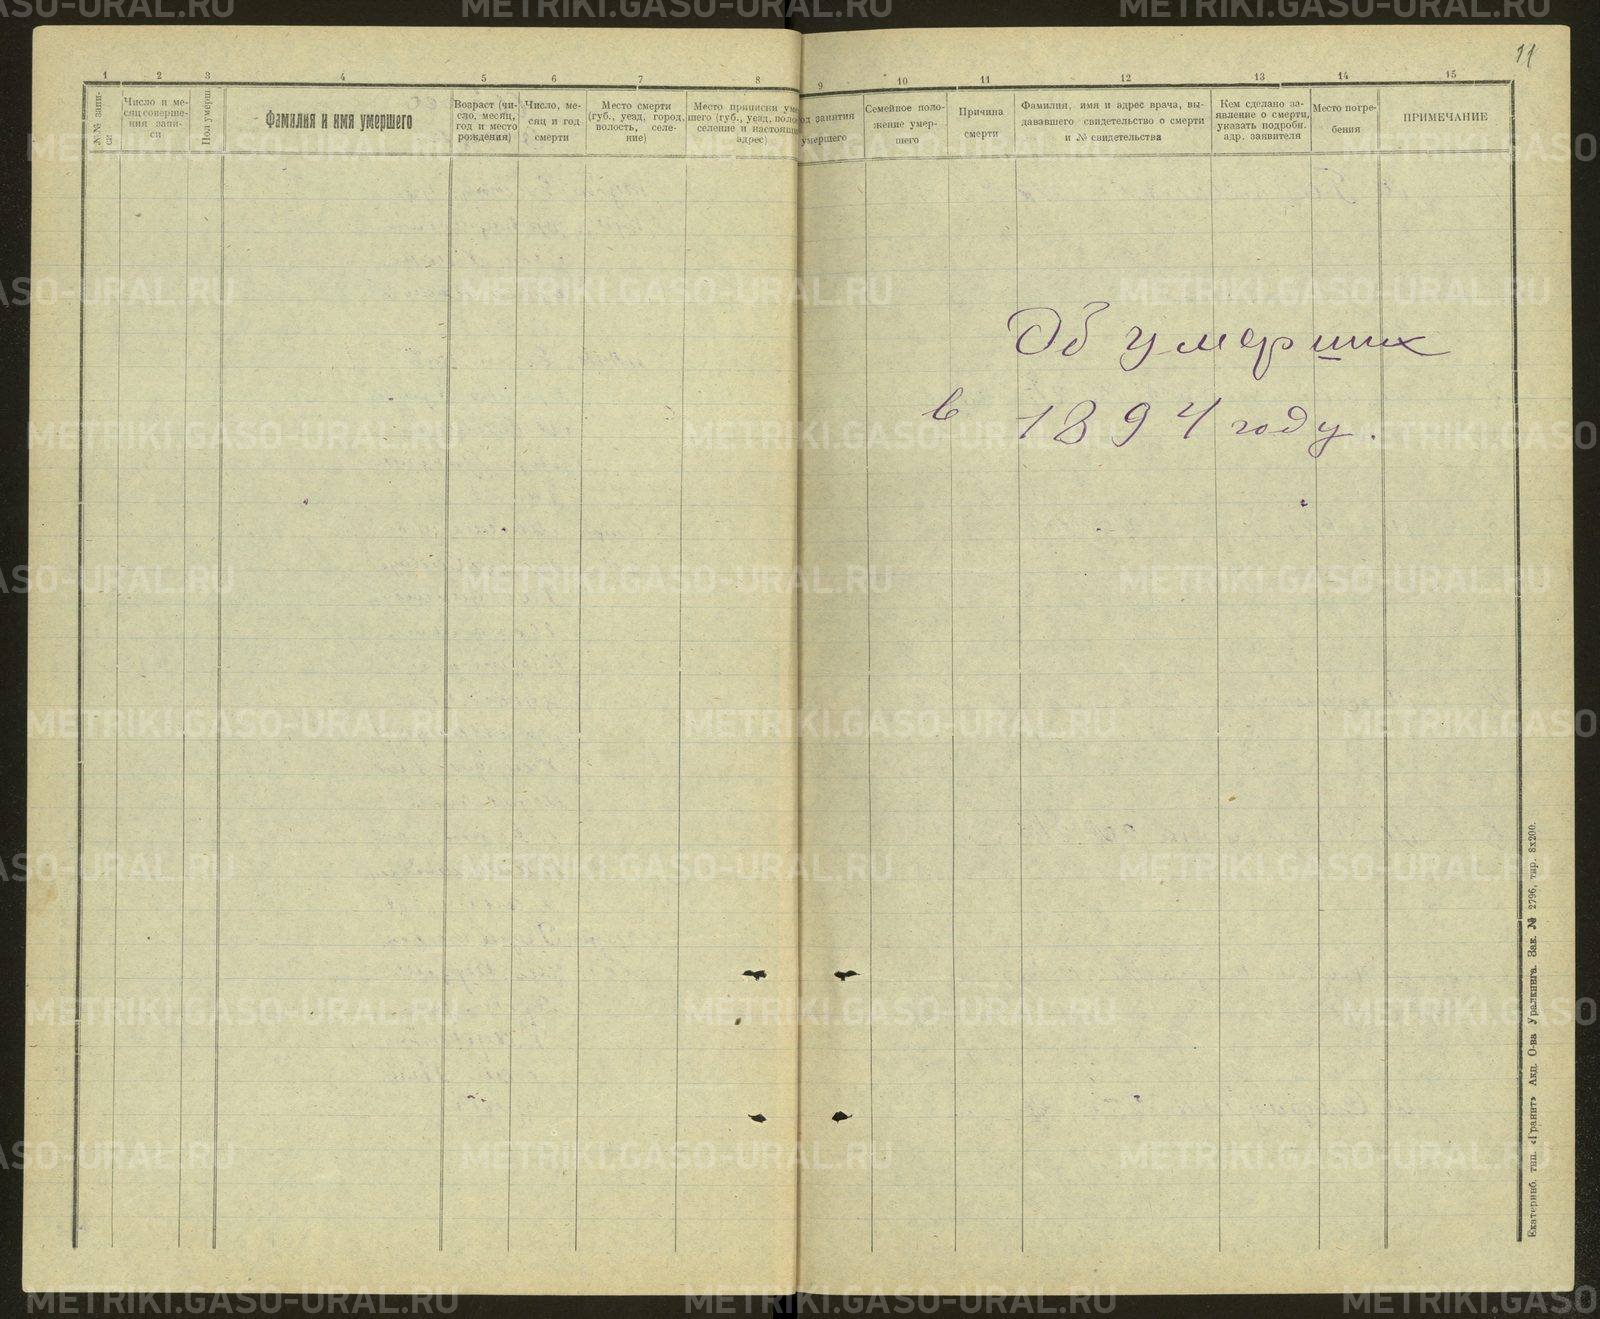 11
1 2 3 4 5 6 7 8 9 10 11 12 13 14 15
№№ запи-
си
Число и ме-
сяц соверше-
ния запи-
си
Пол умерш.
Фамилия и имя умершего
Возраст (чи-
сло, месяц,
год и место
рождения)
Число, ме-
сяц и год
смерти
Место смерти
(губ., уезд, город,
волость, селе-
ние)
Место приписки уме
шего (губ., уезд, воло
селение и настоящи
адрес)
од занятия
умершего
Семейное поло-
жение умер-
шего
Причина
смерти
Фамилия, имя и адрес врача, вы-
дававшего свидетельство о смерти
и № свидетельства
Кем сделано за-
явление о смерти,
указать подробн.
адр. заявителя
Место погре-
бения
ПРИМЕЧАНИЕ
Об умерших
в 1894 году.
Екатеринб. тип. «Гранит» Акц. О-ва Уралкнига. Зак. № 2796, тир. 8х200.
METRIKI.GASO-URAL.RU